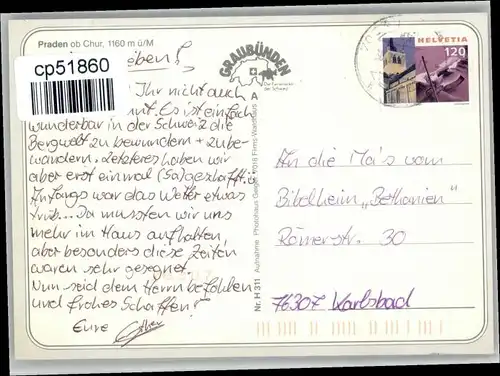 Praden ob Chur, 1160 m ü/M
cp51860
GRAUBÜNDEN
HELVETIA
120
Ihr nicht auch
Es ist einfach
wunderbar in der Schweiz die
Bergwelt zu bewundern + zu be-
wandern. Letzteres haben wir
aber erst einmal (Sa) geschafft.
Anfangs war das Wetter etwas
trüb... Da mussten wir uns
mehr im Haus aufhalten
aber besonders diese Zeiten
waren sehr gesegnet.
Nun seid dem Herrn befohlen
und frohes Schaffen!
Eure
Nr. H 311 Aufnahme Photohaus Geiger 7018 Flims-Waldhaus
A
An die Ma's vom
Bibelheim „Bethanien"
Römerstr. 30
76307 Karlsbad